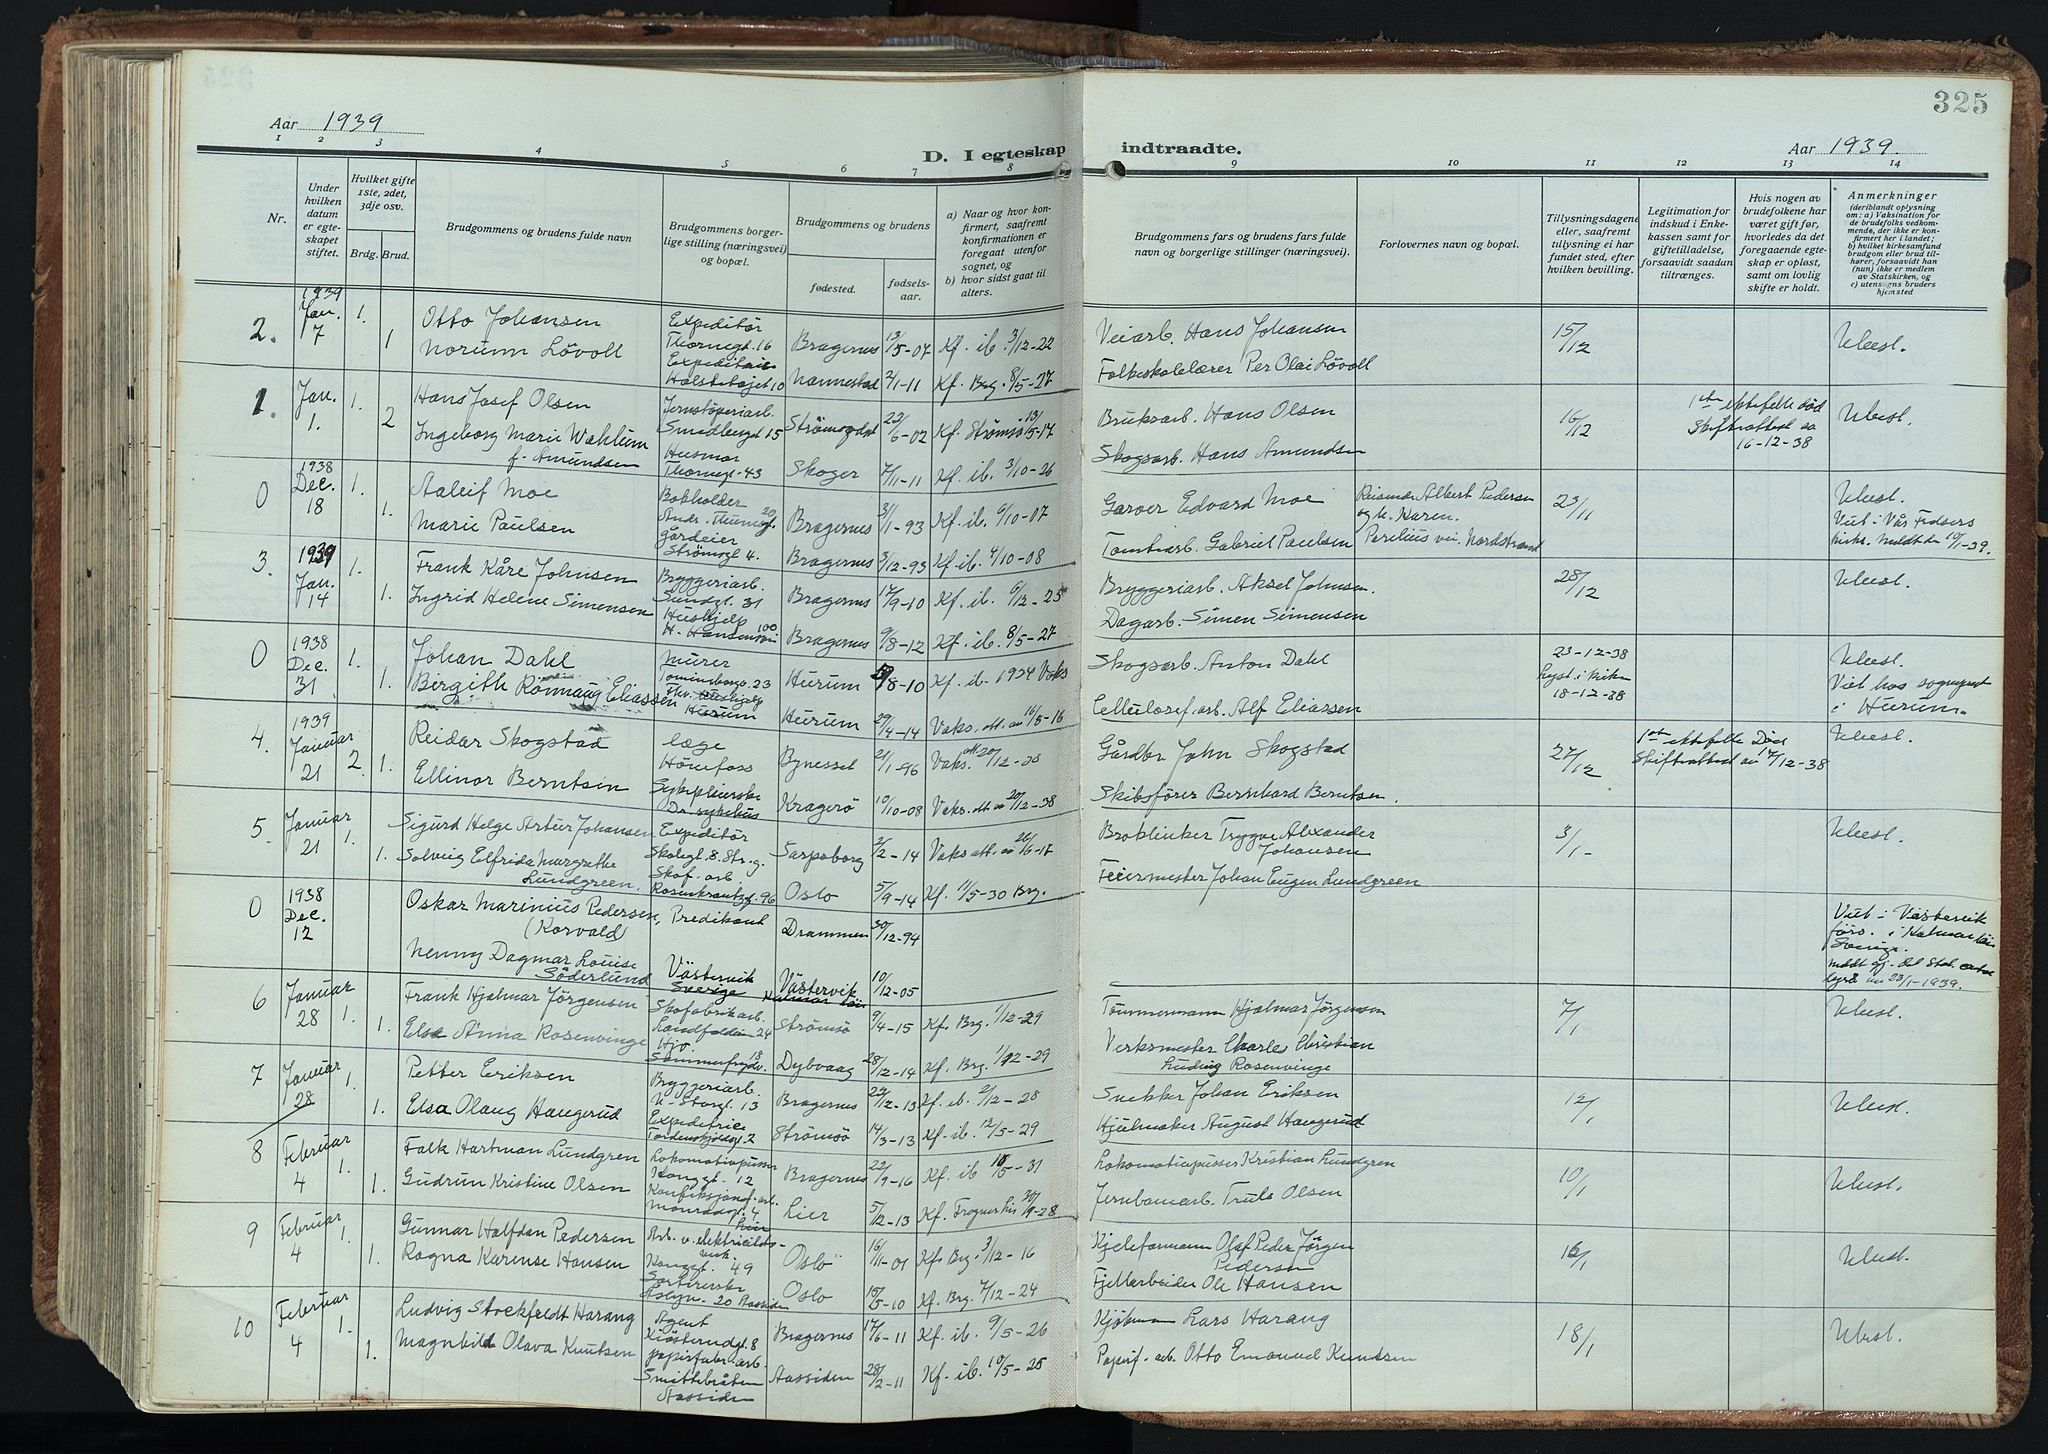 325
Aar 1939
D. I egteskap
indtraadte.
Aar 1939.
1 2 3 4 5 6 7 8
9 10 11 12 13 14
Nr.
Under hvilken datum er egteskapet stiftet.
Hvilket gifte 1ste, 2det, 3dje osv.
Brdg. Brud.
Brudgommens og brudens fulde navn
Brudgommens borgerlige stilling (næringsvei) og bopæl.
Brudgommens og brudens
fødested.
fødselsaar.
a) Naar og hvor konfirmert, saafremt konfirmationen er foregaat utenfor sognet, og
b) hvor sidst gaat til alters.
Brudgommens fars og brudens fars fulde navn og borgerlige stillinger (næringsvei).
Forlovernes navn og bopæl.
Tillysningsdagene eller, saafremt tillysning ei har fundet sted, efter hvilken bevilling.
Legitimation for indskud i Enkekassen samt for giftetilladelse, forsaavidt saadan tiltrænges.
Hvis nogen av brudefolkene har været gift før, hvorledes da det foregaaende egteskap er opløst, samt om lovlig skifte er holdt.
Anmerkninger
(deriblandt oplysning om: a) Vaksination for de brudefolks vedkommende, der ikke er konfirmert her i landet;
b) hvilket kirkesamfund brudgom eller brud tilhører, forsaavidt han (hun) ikke er medlem av Statskirken, og
c) utensogns bruders hjemsted
2. 1939 Jan. 7 1. 1
Otto Johansen Expeditör Thornegt. 16 Bragernes 13/5-07 Kf. ib. 3/12-22
Norunn Lövoll Halsbakgt 10 Nannestad 2/1-11 Kf. Brg. 8/5-27
Veiarb. Hans Johansen 15/12 Ubesl.
Folkeskolelærer Per Olai Lövoll
1. Jan. 1. 1. 2
Hans Josef Olsen Jernstöperiarb. Smedbergt 15 Strömsgodset 22/6-02 Kf. Strömsö 13/5-17
Ingeborg Marie Wahlum f. Amundsen Husmor Thornegt. 43 Skoger 7/11-11 Kf. ib. 3/10-26
Bruksarb. Hans Olsen 16/12 1ste ektefelle död Skifteattest 16-12-38 Ubesl.
Skogsarb. Hans Amundsen
0 1938 Dec. 18 1. 1.
Aaleif Moe Bokholder Bragernes 31/1-93 Kf. ib. 6/10-07
Marie Paulsen Strömsgt 4. Bragernes 3/12-93 Kf. ib. 4/10-08
Garver Edvard Moe Reisende Albert Pedersen og Karen. 23/11 Ubesl. Viet i Vår Frelsers kirke. Meldt den 10/1-39.
Tomtearb. Gabriel Paulsen Nordstrand
3. 1939 Jan. 14 1. 1.
Frank Kåre Johnsen Bryggeriarb. Sundgt. 31 Bragernes 17/9-10 Kf. ib. 6/12-25
Ingrid Helene Simensen Hushjelp H. Hansensvei 100 Bragernes 9/8-12 Kf. ib. 8/5-27
Bryggeriarb. Aksel Johnsen. 28/12 Ubesl.
Dagarb. Simen Simensen
0 1938 Dec. 31 1. 1.
Johan Dahl Murer Hurum /8-10 Kf. ib. 1924 Vaks
Birgith Rönnaug Eliassen Hurum Hurum 29/4-14 Vaks. att. av 16/5-16
Skogsarb. Anton Dahl 23-12-38 Lyst i kirken 18-12-38 Ubesl. Viet hos sogneprest i Hurum.
Cellulosef. arb. Alf Eliassen
4. 1939 Januar 21 2. 1.
Reidar Skogstad læge Hönefoss Bynesset 21/1-96 Vaks. att. 20/12-38
Ellinor Berntsen Sykepleierske Dr. sykehus Kragerö 10/10-08 Vaks. att av 20/12-38
Gårdbr John Skogstad 27/12 1ste ektefelle Död Skifteattest av 17/12-38 Ubesl.
Skibsförer Bernhard Berntsen.
5 Januar 21 1. 1.
Sigurd Helge Artur Johansen Expeditör Skolegt. 8. Str. g. Sarpsborg 2/2-14 Vaks att. av 26/6-17
Solveig Elfrida Margrethe Lundgreen. Skof. arb Rosenkrantzgt. 96 Oslo 5/9-14 Kf. 11/5-30 Brg.
Broklinker Trygve Alexander Johansen 3/1- Ubesl.
Feiermester Johan Eugen Lundgreen
0 1938 Dec. 12
Oskar Marinius Pedersen, (Korvald) Predikant Drammen 30/12-94
Nenny Dagmar Louise Söderlund Västervik Sverige Västervik Kalmar län 10/12-05
Viet i Västervik förs. i Kalmar län Sverige. meldt gj. Det Stat. 23/1-1939.
6 Januar 28 1. 1.
Frank Hjalmar Jörgensen Skofabrikarb. Landfalden 24 Strömsö 9/4-15 Kf. Brg. 1/12-29
Elsa Anna Rosenvinge Hjv Sommerfrydv. 18 Dybvaag 28/12-14 Kf. Brg. 1/12-29
Tömmermann Hjalmar Jörgensen 7/1 Ubesl.
Verksmester Charles Christian Ludvig Rosenvinge
7 Januar 28 1. 1.
Petter Eriksen Bryggeriarb. N. Storgt. 13 Bragernes 22/12-13 Kf. ib. 2/12-28
Elsa Olaug Haugerud Expeditrice Tordenskjoldsgt 2 Strömsö 14/3-13 Kf. ib. 12/5-29
Snekker Johan Eriksen 12/1 Ubesl.
Hjulmaker August Haugerud
8 Februar 4 1. 1.
Falk Hartman Lundgren Lokomotivpusser Konggt. 12 Bragernes 22/9-16 Kf. ib 10/5-31
Gudrun Kristine Olsen Lier Lier 5/12-13 Kf. Frogner 30/9-28
Lokomotivpusser Kristian Lundgren 10/1 Ubesl.
Jernbanearb. Truls Olsen
9 Februar 4 1. 1.
Gunnar Halfdan Pedersen Arb. v. elektricitetsverk. Konggt. 49 Oslo 16/11-01 Kf. Brg. 3/12-16
Ragna Karense Hansen Sorterерske 20 Aassiden Oslo 15/5-10 Kf. Brg. 7/12-24
Kjeleformann Olaf Peder Jörgen Pedersen 16/1 Ubesl.
Fjellarbeider Ole Hansen
10 Februar 4 1. 1.
Ludvig Stockfeldt Harang Agent Klöstergt. 8 Bragernes 17/6-11 Kf. ib. 9/5-26
Magnhild Olava Knutsen papirfabr. arb. Smittebråten Aassiden Aassiden 28/2-11 Kf. ib. 10/5-25
Kjöbmann Lars Harang 18/1 Ubesl.
Papirf. arb. Otto Emanuel Knutsen